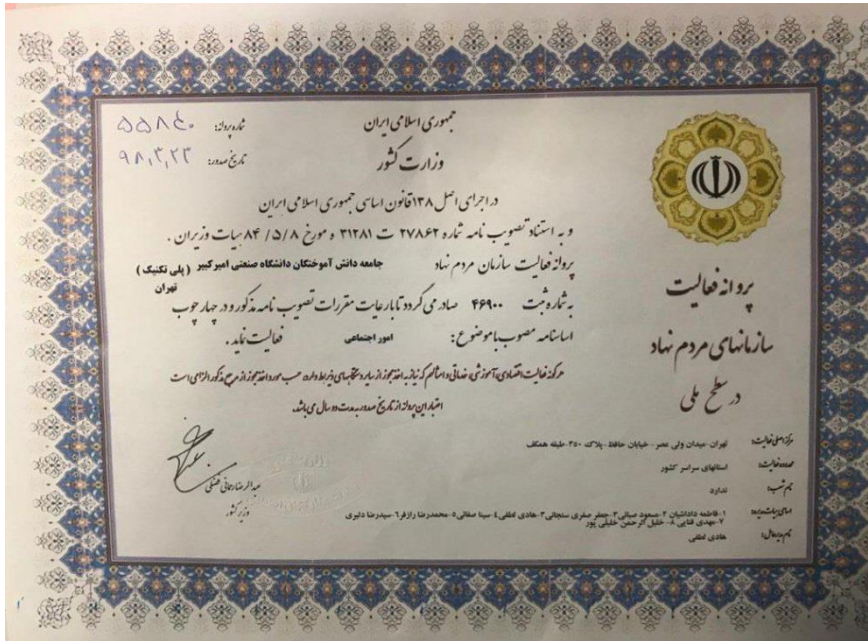 جمهوری اسلامی ایران
وزارت کشور
شماره پروانه: ۵۵۸۴۰
تاریخ صدور: ۹۸,۳,۲۳
در اجرای اصل ۱۳۸ قانون اساسی جمهوری اسلامی ایران
و به استناد تصویب نامه شماره ۲۷۸۶۲ ت ۳۱۲۸۱ ه مورخ ۸۴/۵/۸ هیات وزیران .
پروانه فعالیت سازمان مردم نهاد جامعه دانش آموختگان دانشگاه صنعتی امیرکبیر ( پلی تکنیک )
تهران
به شماره ثبت ۴۶۹۰۰ صادر می گردد تا با رعایت مقررات تصویب نامه مذکور و در چهار چوب
اساسنامه مصوب با موضوع : امور اجتماعی فعالیت نماید .
هر گونه فعالیت اقتصادی، آموزشی، خدماتی و امثالهم که نیاز به اخذ مجوز از سایر دستگاههای ذیربط دارد، حسب مورد اخذ مجوز از مرجع مذکور الزامی است
اعتبار این پروانه از تاریخ صدور به مدت دو سال می باشد.
پروانه فعالیت
سازمانهای مردم نهاد
در سطح ملی
عبدالرضا رحمانی فضلی
وزیر کشور
مرکز اصلی فعالیت: تهران-میدان ولی عصر- خیابان حافظ-پلاک ۳۵۰-طبقه همکف
محدوده فعالیت: استانهای سراسر کشور
نام شعب: ندارد
اسامی هیات مدیره: ۱-فاطمه داداشیان ۲-مسعود صیانی ۳-جعفر صفری سنجانی ۳-هادی لطفی ٤-سینا صفائی ۵-محمدرضا رازفر ٦-سیدرضا دلیری
۷-مهدی قنایی ۸-خلیل الرحمن خلیلی پور
نام مدیرعامل: هادی لطفی